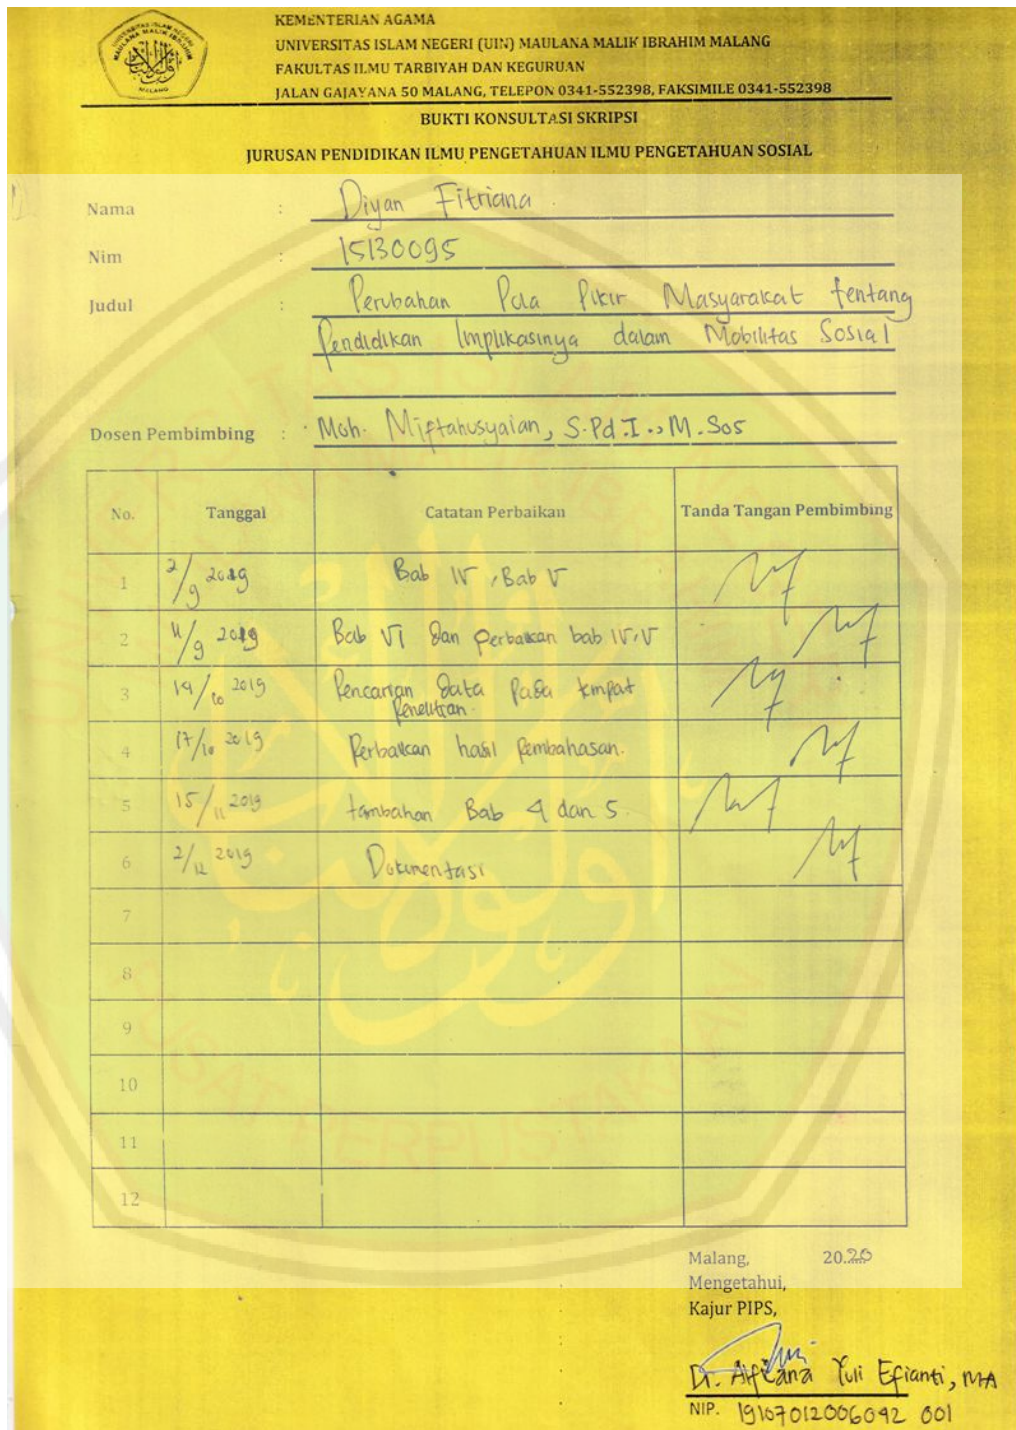 KEMENTERIAN AGAMA
UNIVERSITAS ISLAM NEGERI (UIN) MAULANA MALIK IBRAHIM MALANG
FAKULTAS ILMU TARBIYAH DAN KEGURUAN
JALAN GAJAYANA 50 MALANG, TELEPON 0341-552398, FAKSIMILE 0341-552398
BUKTI KONSULTASI SKRIPSI
JURUSAN PENDIDIKAN ILMU PENGETAHUAN ILMU PENGETAHUAN SOSIAL
Nama : Diyan Fitriana
Nim : 15130095
Judul : Perubahan Pola Pikir Masyarakat tentang
Pendidikan Implikasinya dalam Mobilitas Sosial
Dosen Pembimbing : Moh. Miftahusyaian, S.Pd.I., M.Sos
No. Tanggal Catatan Perbaikan Tanda Tangan Pembimbing
1 2/9 2019 Bab IV, Bab V
2 11/9 2019 Bab VI dan perbaikan bab IV, V
3 14/10 2019 Pencarian data pada tempat
Penelitian.
4 17/10 2019 Perbaikan hasil pembahasan.
5 15/11 2019 tambahan Bab 4 dan 5.
6 2/12 2019 Dokumentasi
7
8
9
10
11
12
Malang, 20.20
Mengetahui,
Kajur PIPS,
Dr. Alfiana Yuli Efianti, MA
NIP. 19107012006042 001